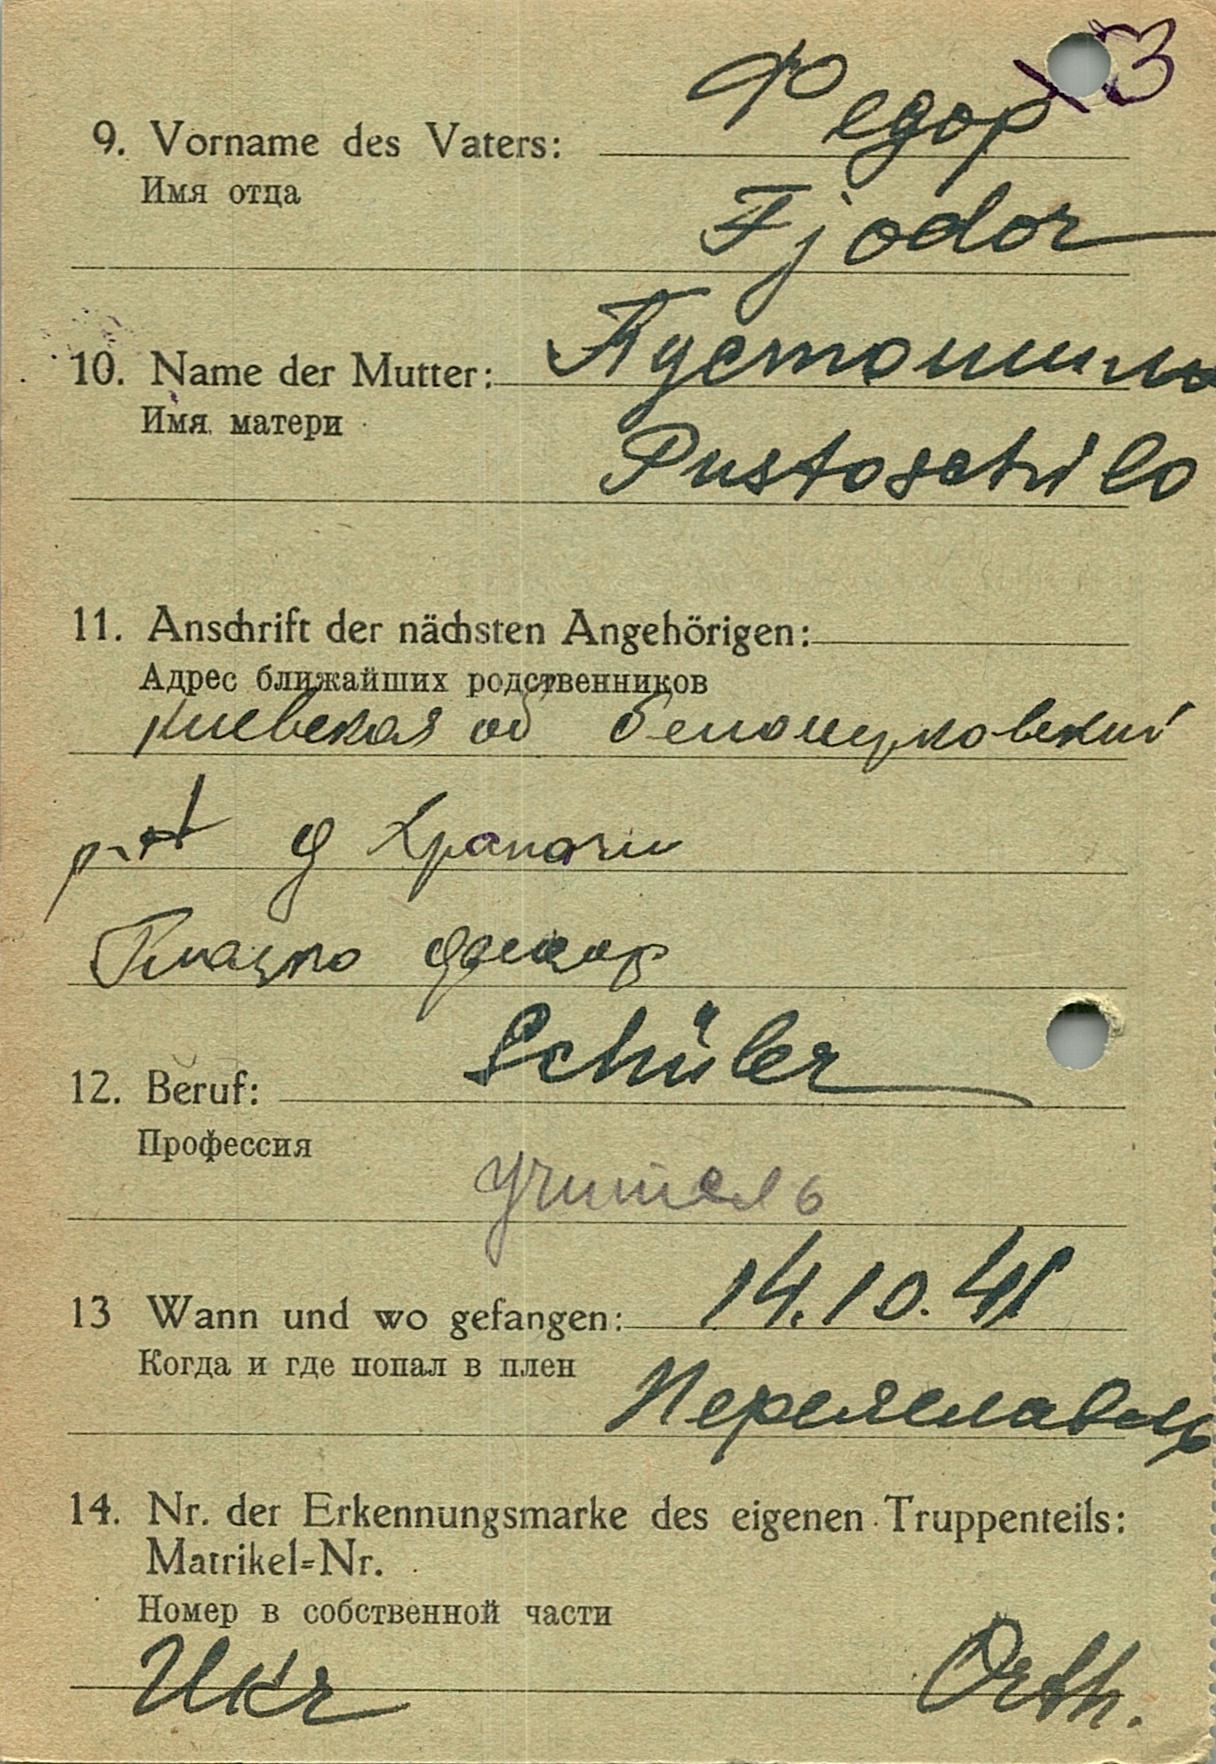 13
Федор
9. Vorname des Vaters:
Имя отца
Fjodor
10. Name der Mutter: Пустошило
Имя матери
Pustoschilo
11. Anschrift der nächsten Angehörigen:
Адрес ближайших родственников
Киевская об белоцерковский
д Храпачи
Schüler
12. Beruf:
Профессия
Учитель
13 Wann und wo gefangen: 14.10.41
Когда и где попал в плен
Переяславль
14. Nr. der Erkennungsmarke des eigenen Truppenteils:
Matrikel=Nr.
Номер в собственной части
Ukr Orth.